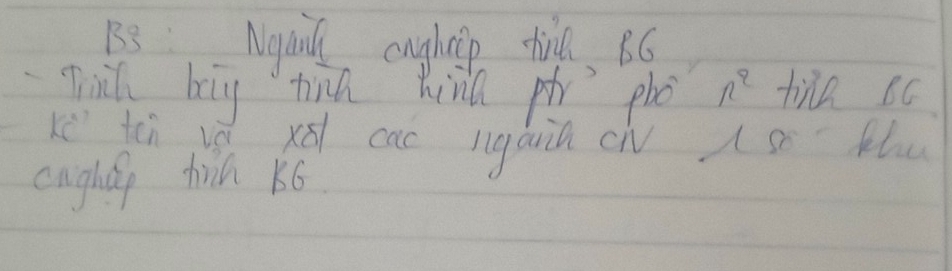 B3: Ngành cnghiệp tỉnh BG
- Trình bày tình hình ptr phố n² tỉnh BG
- Kể tên và các ngành CN 1 số khu
cnghiệp tỉnh BG.